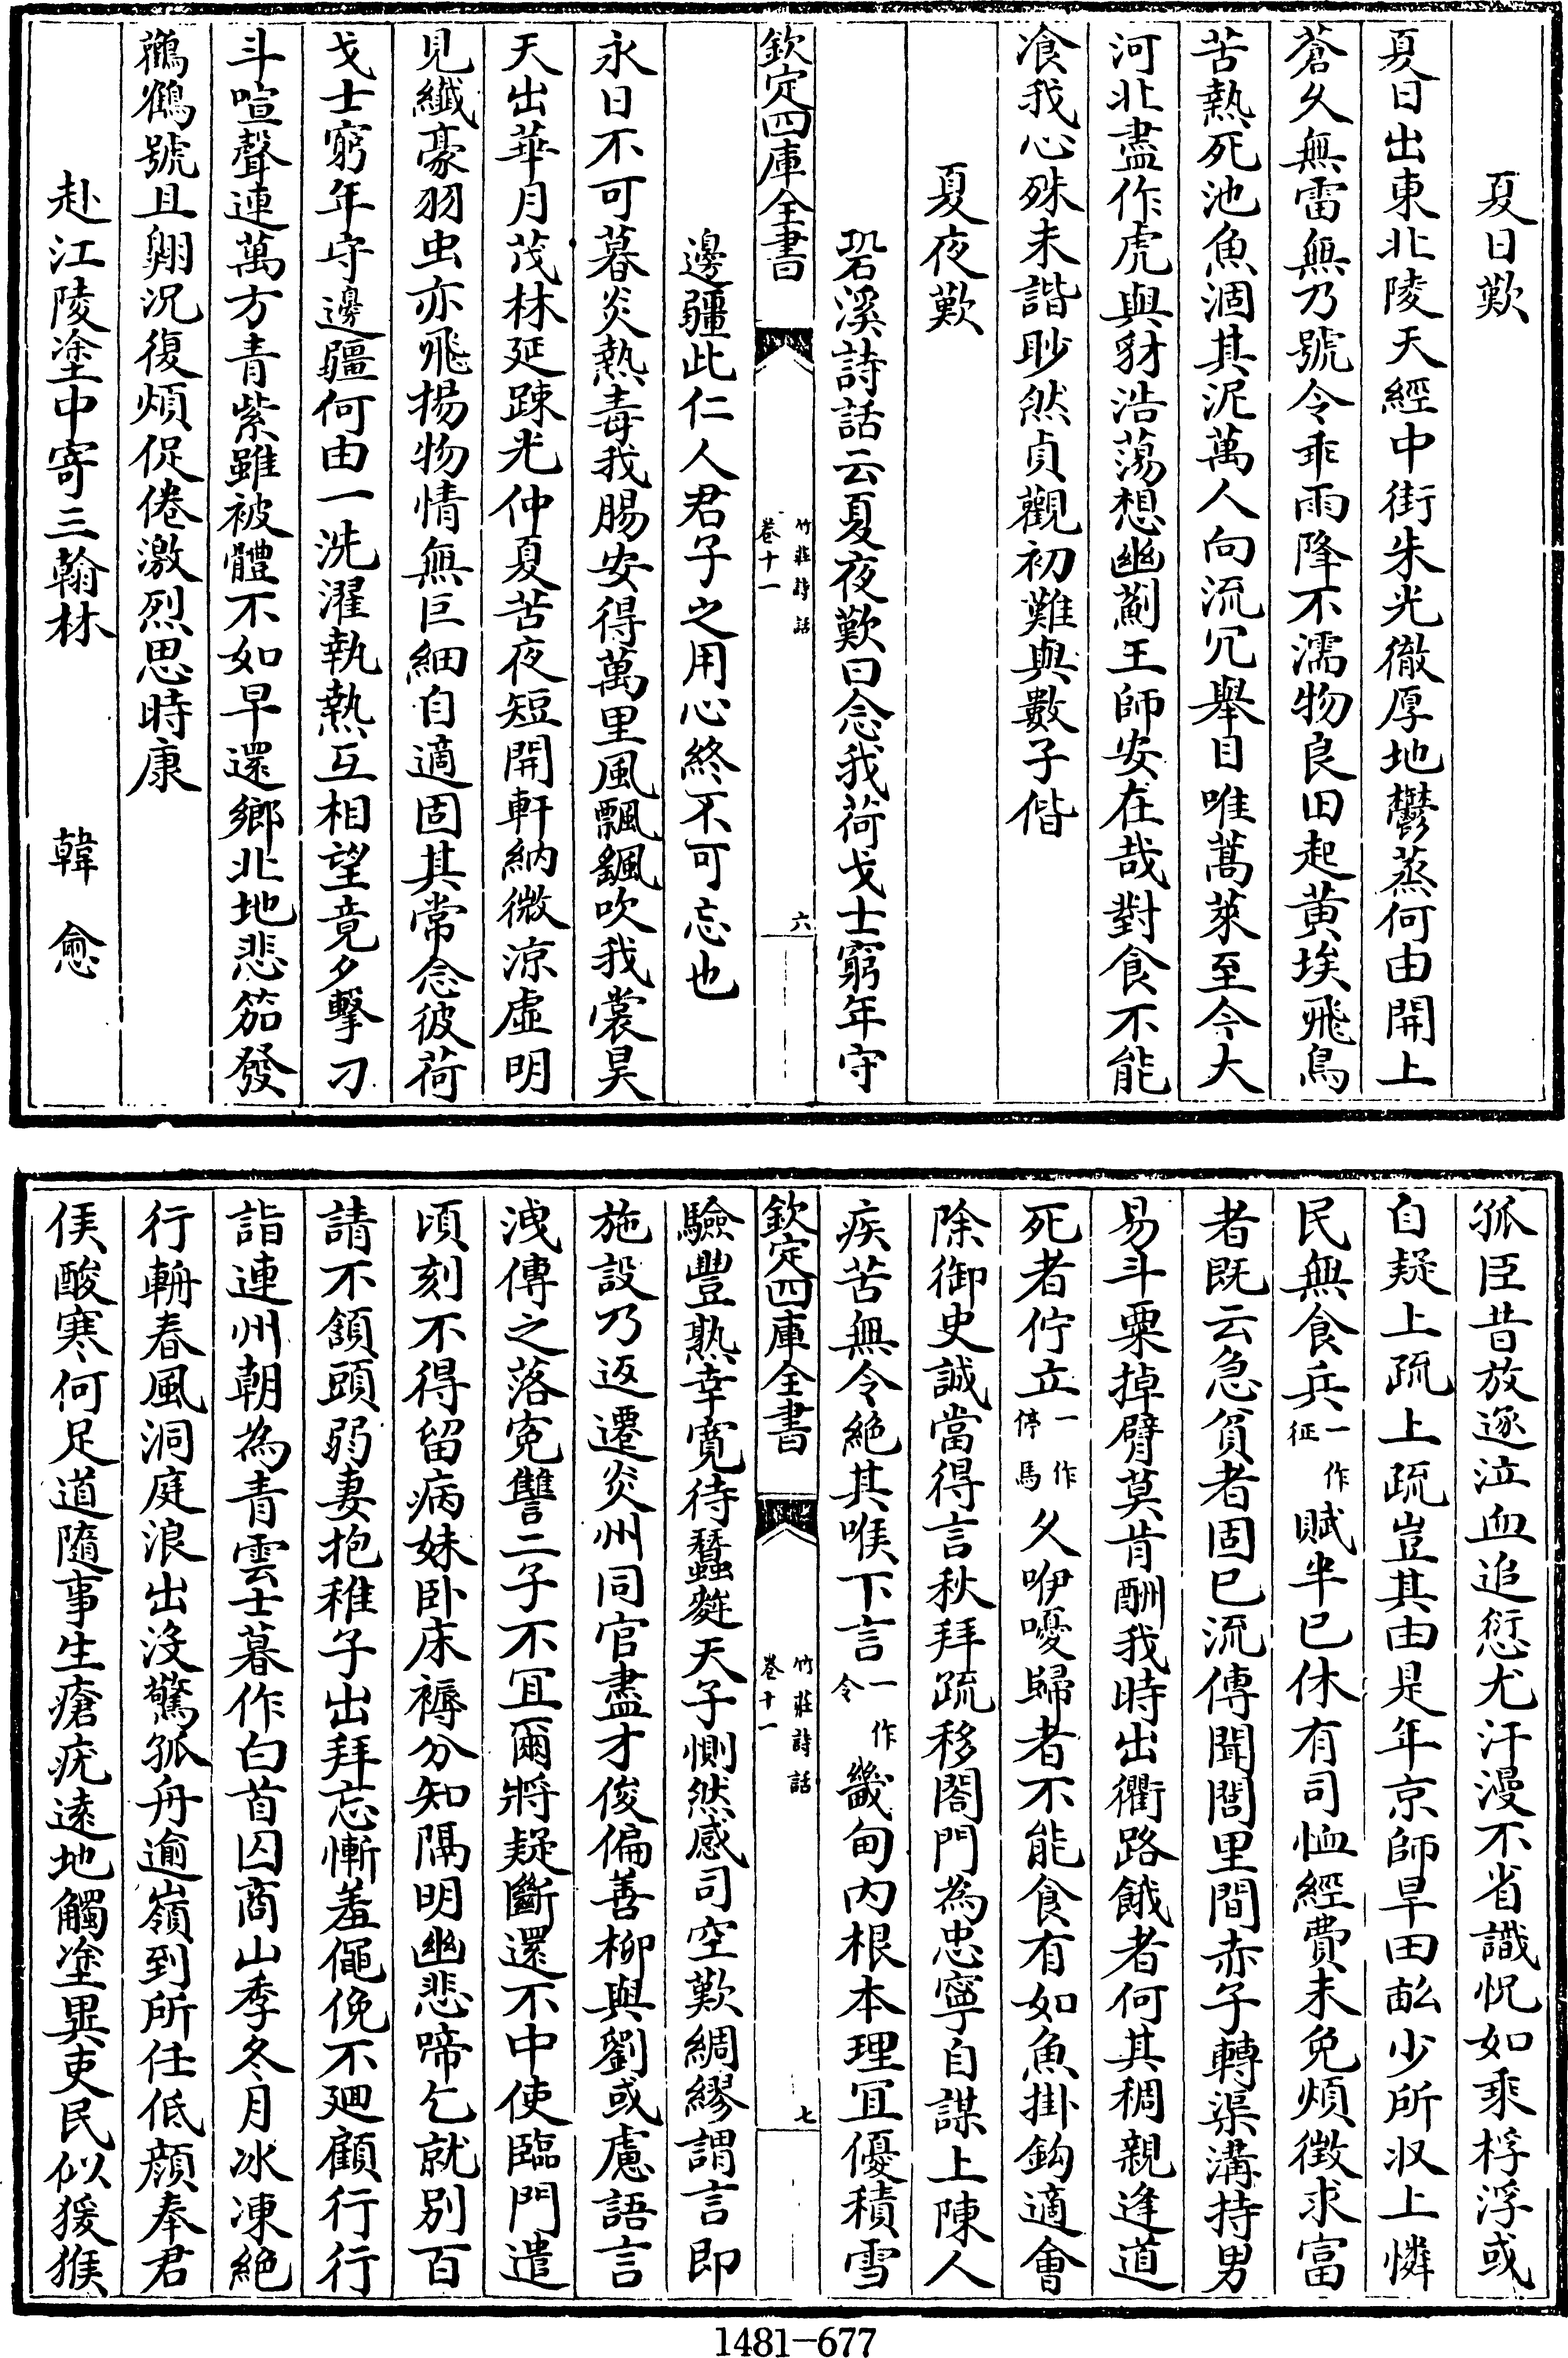 夏日歎
夏日出東北陵天經中街朱光徹厚地鬱蒸何由開上
蒼久無雷無乃號令乖雨降不濡物良田起黄埃飛鳥
苦熱死池魚涸其泥萬人向流冗舉目唯蒿萊至今大
河北盡作虎與豺浩蕩想幽薊王師安在哉對食不能
飡我心殊未諧眇然貞觀初難與數子偕
夏夜歎
䂬溪詩話云夏夜歎曰念我荷戈士窮年守
欽定四庫全書
竹莊詩話
卷十一
六
邊疆此仁人君子之用心終不可忘也
永日不可暮炎熱毒我腸安得萬里風飄飖吹我裳昊
天出華月茂林延疎光仲夏苦夜短開軒納微涼虛明
見纖豪羽虫亦飛揚物情無巨細自適固其常念彼荷
戈士窮年守邊疆何由一洗濯執熱互相望竟夕擊刁
斗喧聲連萬方青紫雖被體不如早還鄉北地悲笳發
鸛鶴號且翔況復煩促倦激烈思時康
赴江陵塗中寄三翰林 韓愈
孤臣昔放逐泣血追愆尤汗漫不省識怳如乘桴浮或
自疑上疏上疏豈其由是年京師旱田畝少所收上憐
民無食兵一作征賦半已休有司恤經費未免煩徵求富
者既云急貧者固已流傳聞閭里間赤子轉渠溝持男
易斗粟掉臂莫肯酬我時出衢路餓者何其稠親逢道
死者佇立一作停馬久咿嚘歸者不能食有如魚掛鈎適會
除御史誠當得言秋拜疏移閤門為忠寧自謀上陳人
疾苦無令絶其喉下言一作令畿甸内根本理宜優積雪
欽定四庫全書
竹莊詩話
卷十一
七
驗豐熟幸寬待蠶麰天子惻然感司空歎綢繆謂言即
施設乃返遷炎州同官盡才俊偏善柳與劉或慮語言
洩傳之落冤讐二子不宜爾將疑斷還不中使臨門遣
頃刻不得留病妹卧床褥分知隔明幽悲啼乞就別百
請不頷頭弱妻抱稚子出拜忘慚羞僶俛不廻顧行行
詣連州朝為青雲士暮作白首囚商山季冬月冰凍絶
行輈春風洞庭浪出没驚孤舟逾嶺到所任低顔奉君
侯酸寒何足道隨事生瘡疣遠地觸塗異吏民似猨猴
1481-677